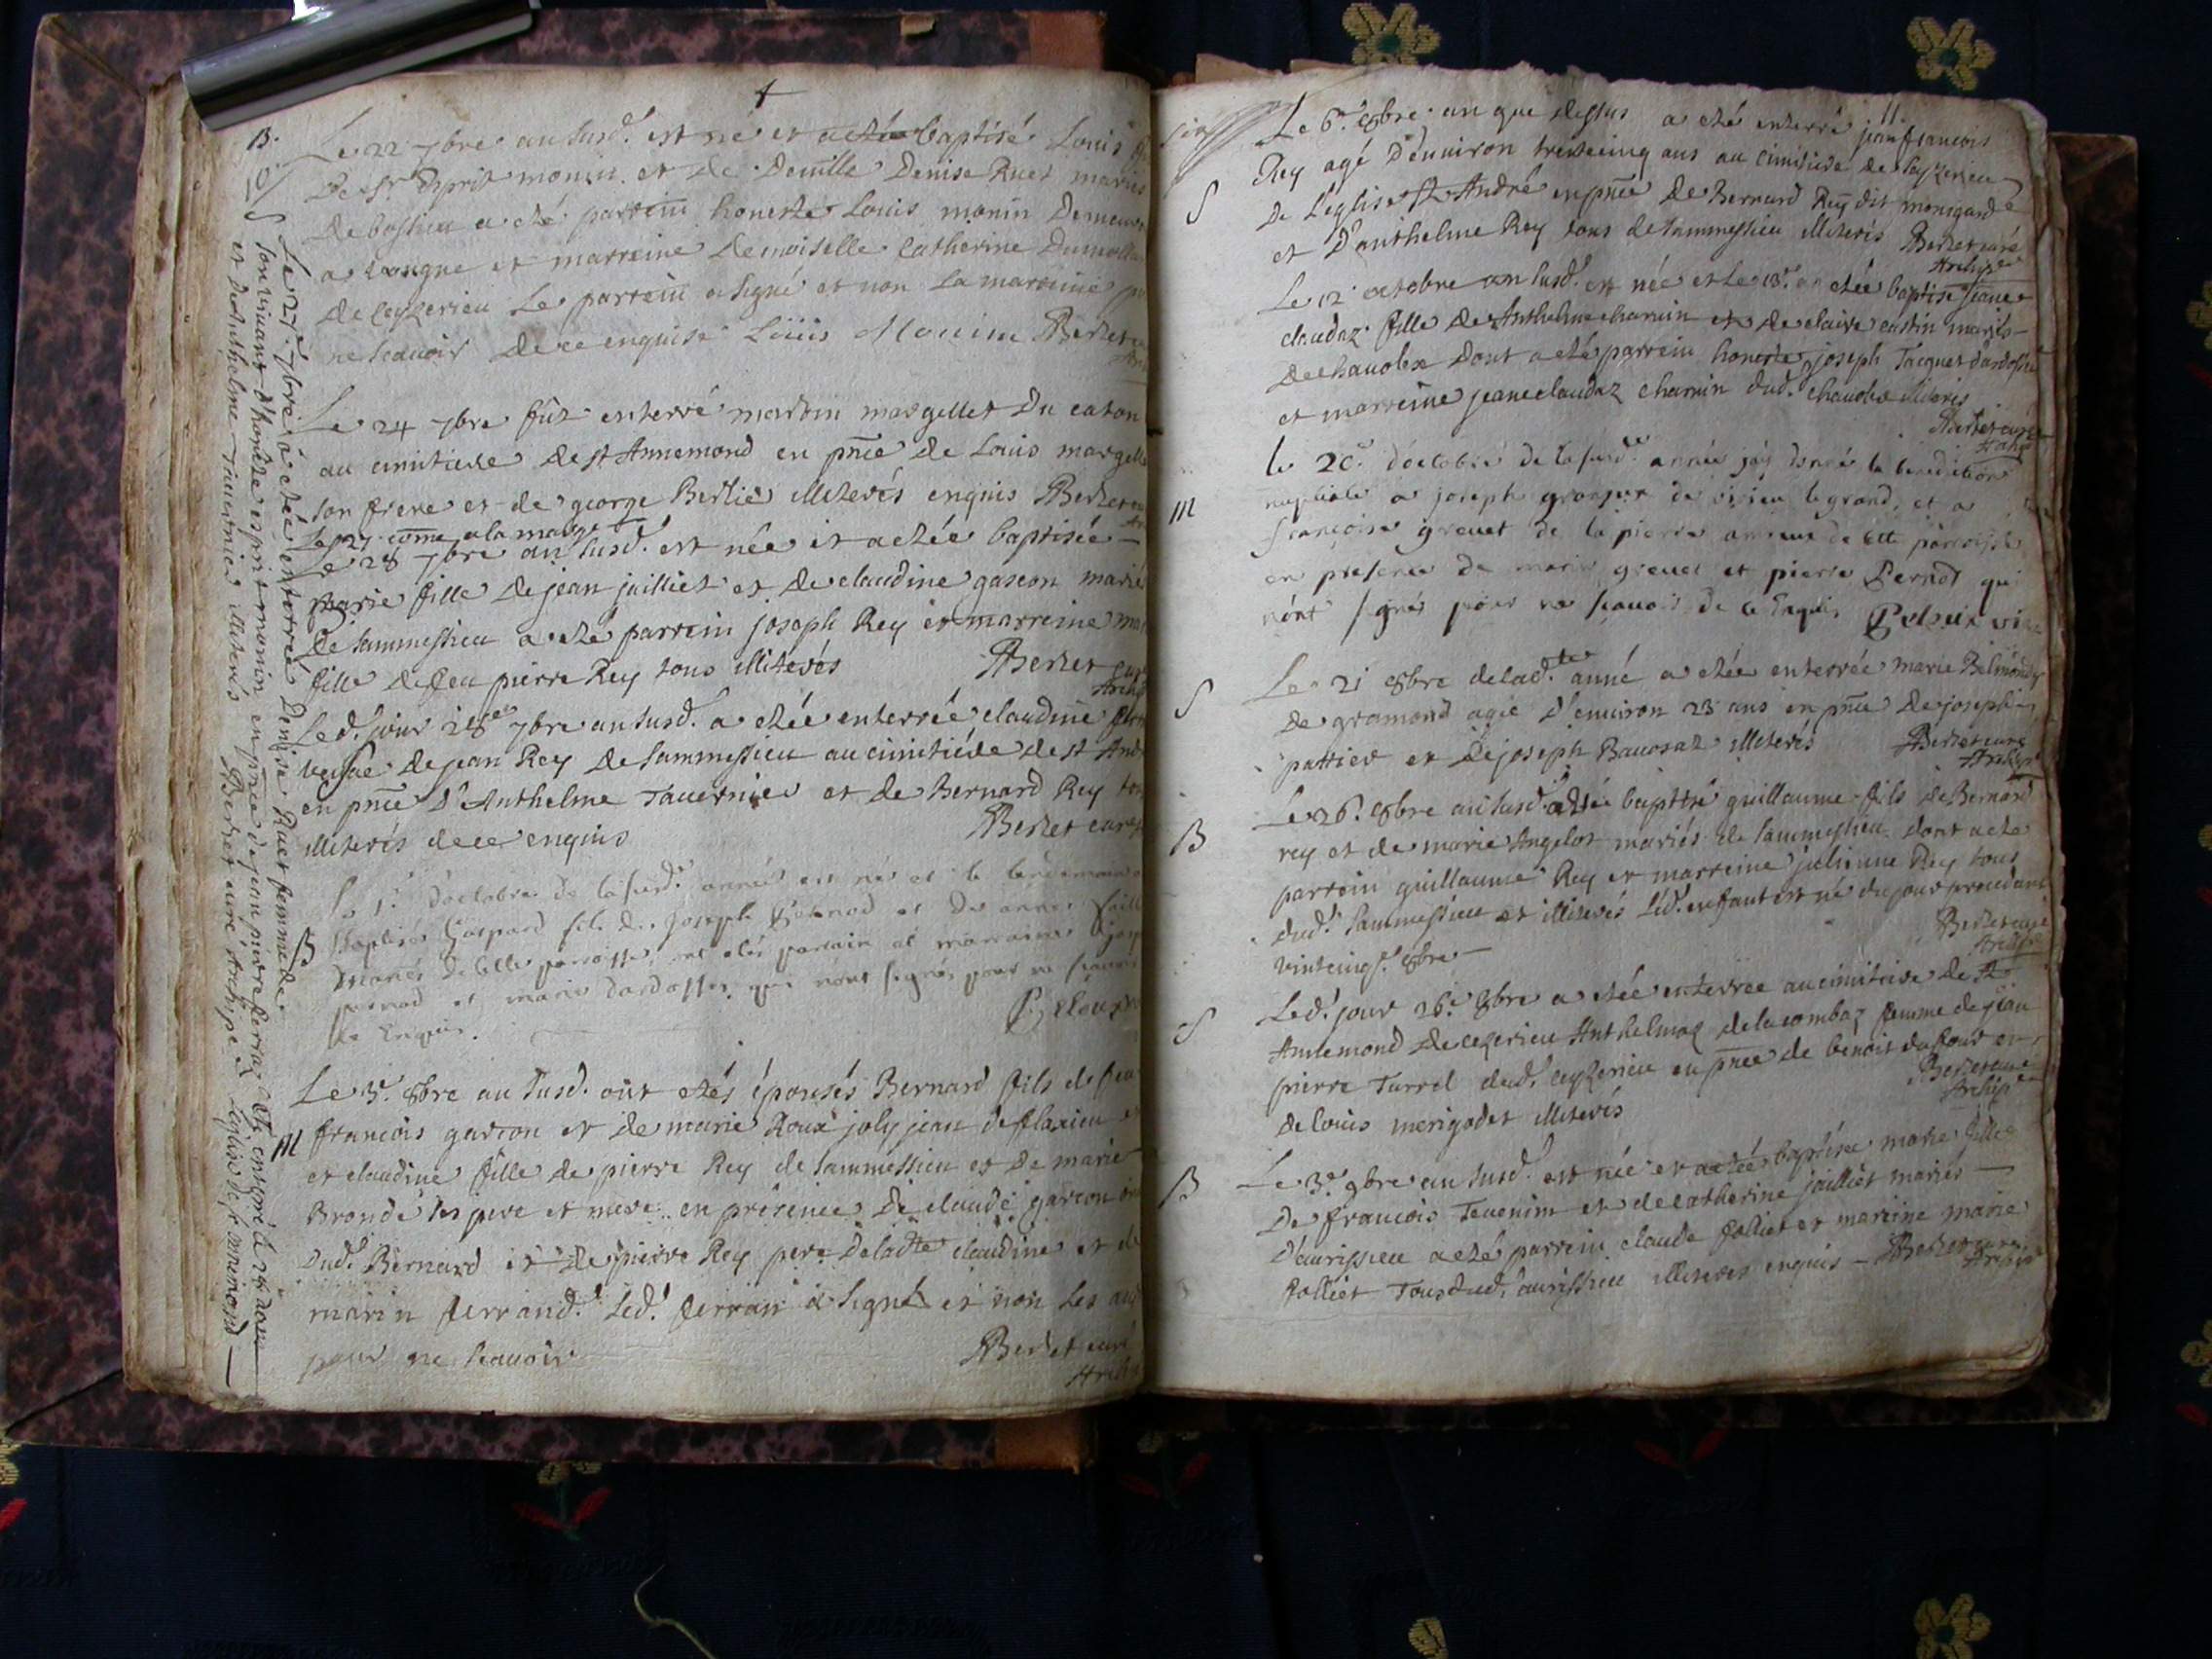 B.
Le 22 7bre an susd. est né et a eté baptisé Louis
De Sr Esprit monin et de Demlle Denise Ruet mariés
de bossieu a eté parrein honeste Louis monin Demeur
a vougne et marreine demoiselle Catherine Dumoll
de ceyzerieu Le parrein a signé et non La marreine
ne scavoir de ce enquise Loüis Monin Berlet
Le 24 7bre fût enterré martin margellet Du caton
au cimitiere de st Annemond en pnce de Louis margelle
son frere et de george Berlié illiterés enquis Berlet
Le 27 come a la marge
Le 28 7bre an susd. est née et a etée baptisée
marie fille de jean juilliet et de claudine gascon mariés
De sammessieu a eté parrein joseph Rey et marreine mar
fille de feu pierre Rey tous illiterés Berlet curé
Archip
Led. jour 28e 7bre an susd. a etée enterrée claudine
veuve de jean Rey de sammessieu au cimitiére de st And
en pnce d'Anthelme Tavernier et de Bernard Rey tou
illiterés de ce enquis Berlet curé
B
Le 1r d'octobre de la susd. année est né et le lendemain
Baptisé Gaspard fils de Joseph pernod et de anne
mariés de cette paroisse, ont étés parrain et marraine
pernod et marie dardossei, qui n'ont signés pour ne scavoir
de Enquis.
M
Le 3e 8bre an susd. oñt etés épousés Bernard fils de feu
francois garcon et de marie Roux joly jean de flaxieu
et claudine fille de pierre Rey de sammessieu et de marie
Bronde ses pere et mere en présence de claude garcon
dud. Bernard et de pierre Rey pere de ladte claudine et de
marin ferrand. Led. ferran a signé et non Les au
pour ne scavoir Berlet curé
Arch
S Le 27e 7bre a etée enterrée Denise Ruet femme de
son vivant d'honeste esprit monin en pnce de jean pierre ferra
et d'Anthelme Tavernier illiterés Berlet curé Archip
11
Le 6e 8bre an que dessus a eté enterré jean francois
S
Rey agé d'environ trentecinq ans au cimitiere de Ceyzerieu
De L'eglise St André en pnce de Bernard Rey dit monigard
et d'anthelme Rey tous de sammessieu illiterés Berlet curé
Archip
Le 12 octobre an susd. est née et Le 13e a etée baptisé jeane
claudaz fille de Anthelme charvin et de claire castin mariés
de chavolex dont a eté parrein honeste joseph Jacquet d'ardosse
et marreine jeaneclaudaz charvin dud. chavolex illiterés
Berlet curé
Archip
M
le 20e d'octobre de la susd. année j'ay donné la benediction
nuptiale a joseph de virieu le grand, et a
francoise grevet de la pierre de cette parroisse
en presence de marin grevet et pierre Pernod qui
n'ont signés pour ne scavoir de ce Enquis
S
Le 21 8bre de lad. anné a etée enterrée marie Belmondy
de gramond agée d'environ 23 ans en pnce de joseph
pattier et de joseph Bavosaz illiterés Berlet curé
Archip
B
Le 26e 8bre an susd. a etée baptisé guillaume fils de Bernard
rey et de marie Angelot mariés de sammessieu dont a eté
parrein guillaume Rey et marreine julienne Rey tous
dud. sammessieu et illiterés Led. enfant est né du jour precedent
vintcinqe 8bre Berlet curé
Archip
S
Led. jour 26e 8bre a etée enterrée au cimitiere de St
Annemond de ceyzerieu Anthelmaz delacombaz femme de jean
pierre Turrel dud. ceyzerieu en pnce de benoit dufour et
de louis merigodet illiterés Berlet curé
Archip
B
Le 3e 9bre an susd. est née et a etée baptisée marie fille
de francois Tevenin et de catherine juilliet mariés
d'avrissieu a eté parrein claude folliet et mareine marie
folliet Tous dud. avrissieu illiterés enquis Berlet curé
Archip